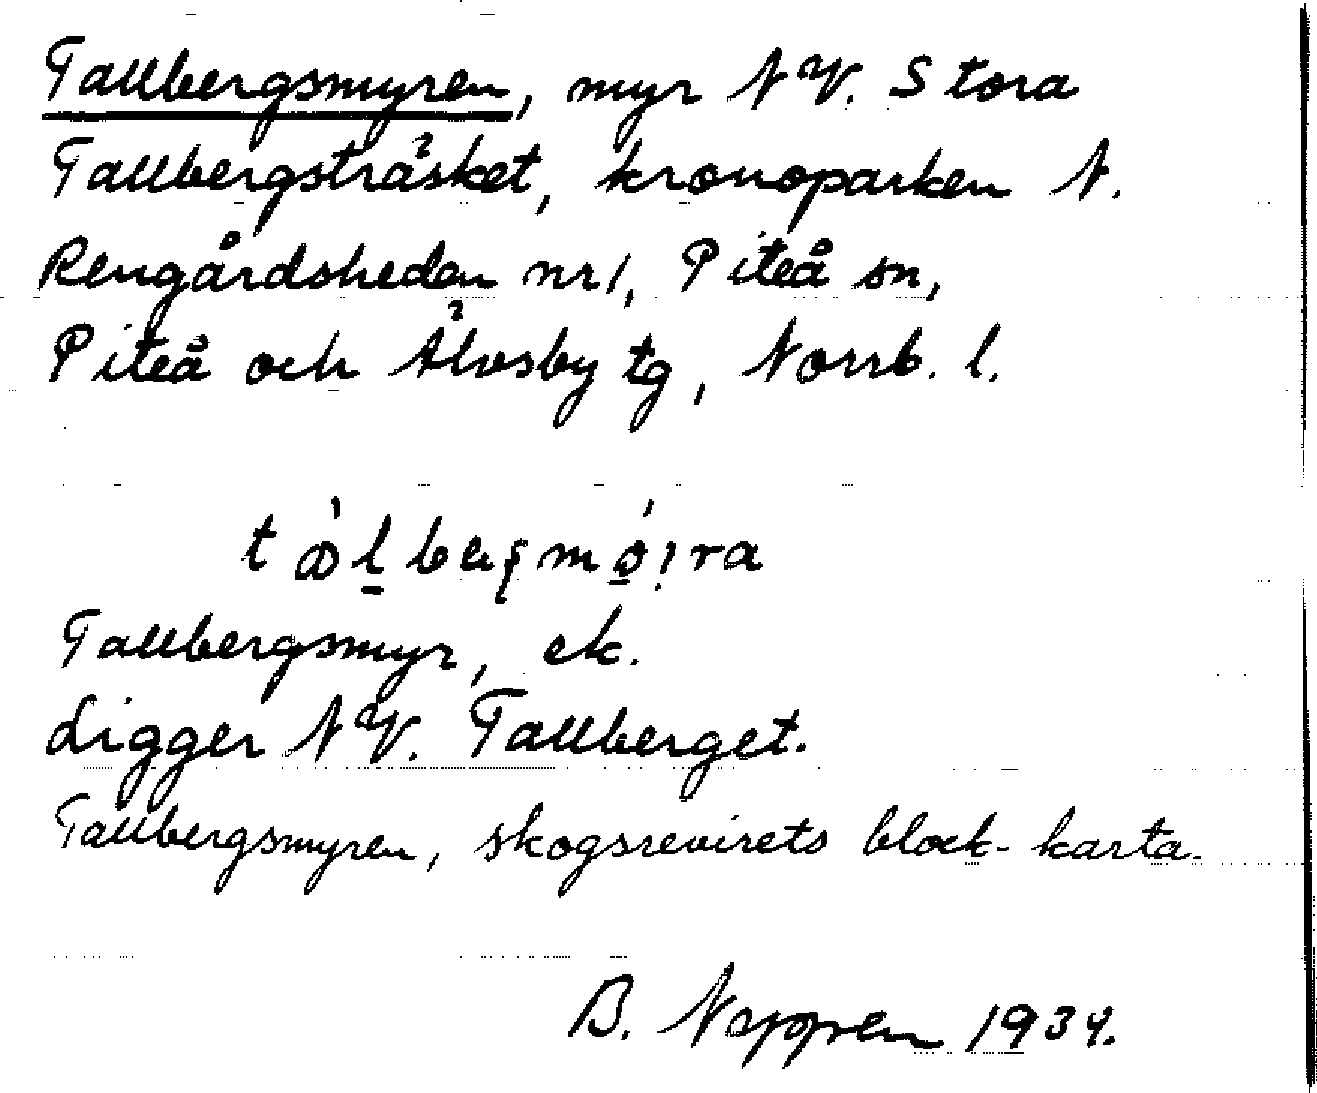 Tallbergsmyren, myr NV. Stora
Tallbergsträsket, kronoparken N.
Rengårdsheden nr 1, Piteå sn,
Piteå och Älvsby tg, Norrb. l.
Tallbergsmyr, ek.
Ligger NV. Tallberget.
Tallbergsmyren, skogsrevirets block-karta.
B. Nappren 1934.